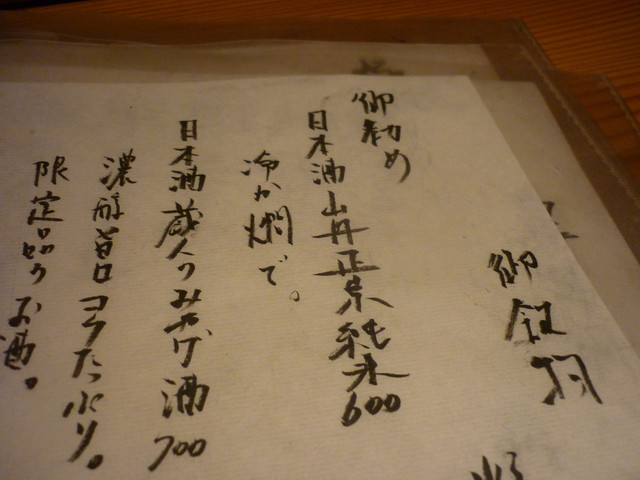 御勧め
日本酒 山丹正宗純米 600
冷か燗で。
日本酒 蔵人のみやげ酒 700
濃醇旨口 コクたっぷり。
限定品のお酒。